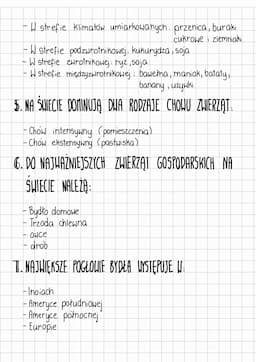 - W strefie klimatów umiarkowanych: pszenica, buraki
cukrowe i ziemniaki
- W strefie podzwrotnikowej: kukurydza, soja
- W strefie zwrotnikowej: ryż, soja
- W strefie międzyzwrotnikowej: bawełna, maniok, bataty,
banany, używki
5. NA ŚWIECIE DOMINUJĄ DWA RODZAJE CHOWU ZWIERZĄT:
- Chów intensywny (pomieszczenia)
- Chów ekstensywny (pastwiska)
6. DO NAJWAŻNIEJSZYCH ZWIERZĄT GOSPODARSKICH NA
ŚWIECIE NALEŻĄ:
- Bydło domowe
- Trzoda chlewna
- owce
- drób
7. NAJWIĘKSZE POGŁOWIE BYDŁA WYSTĘPUJE W:
- Indiach
- Ameryce południowej
- Ameryce północnej
- Europie